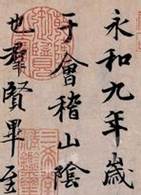 永和九年歲
于會稽山陰
也羣賢畢至